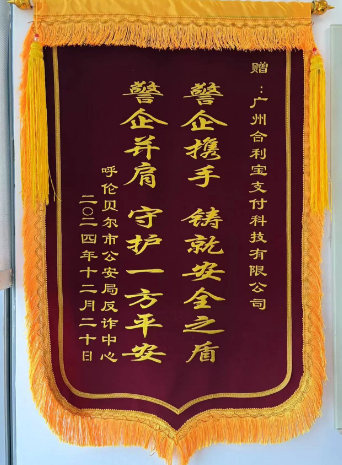 赠：广州合利宝支付科技有限公司
警企携手 铸就安全之盾
警企并肩 守护一方平安
呼伦贝尔市公安局反诈中心
二〇二四年十二月二十日